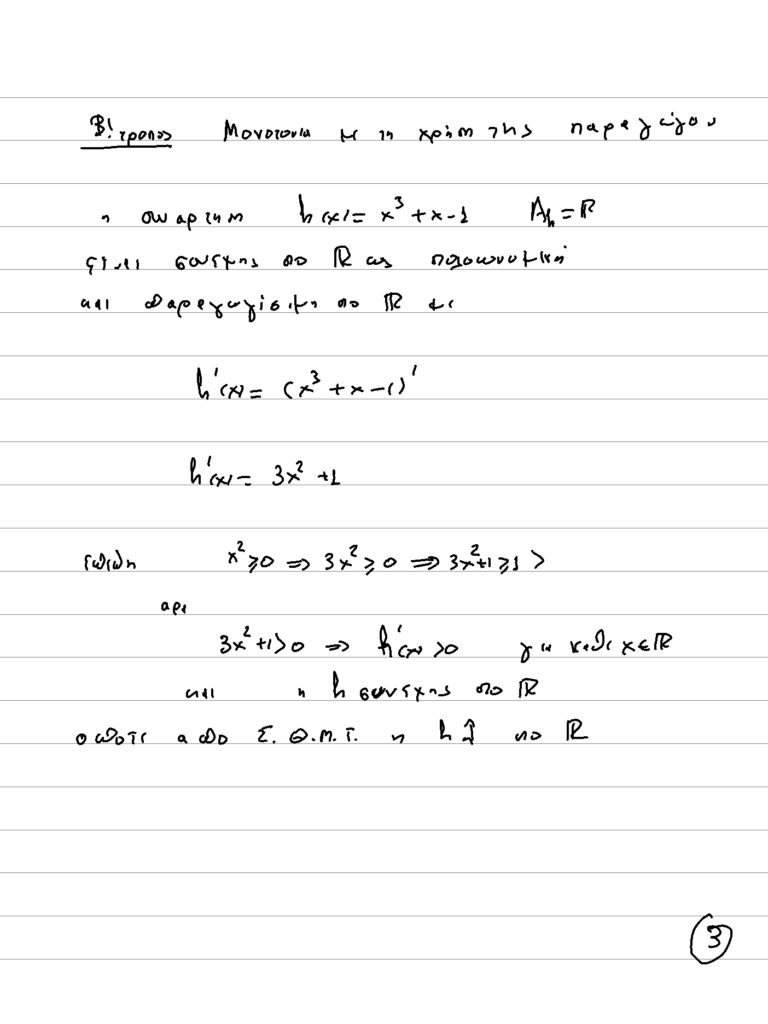 Β! τροπος Μονοτονια με τη χρηση της παραγωγου
η συναρτηση h(x) = x³ + x - 1 A_h = ℝ
ειναι συνεχης στο ℝ ως πολυωνυμικη
και παραγωγισιμη στο ℝ με
h'(x) = (x³ + x - 1)'
h'(x) = 3x² + 1
επειδη x² ≥ 0 ⇒ 3x² ≥ 0 ⇒ 3x² + 1 ≥ 1 >
αρα
3x² + 1 > 0 ⇒ h'(x) > 0 για καθε x ∈ ℝ
και η h συνεχης στο ℝ
οποτε απο Σ.Θ.Μ.Τ. η h ↑ στο ℝ
3